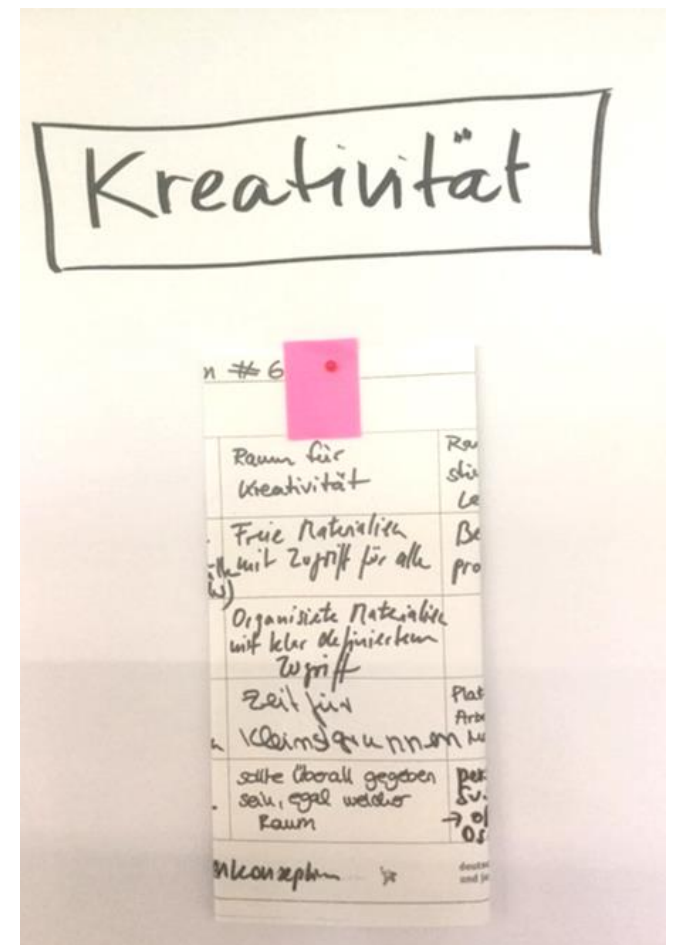 Kreativität
n # 6
Raum für
Kreativität
Freie Materialien
mit Zugriff für alle
Organisierte Materialien
mit klar definiertem
Zugriff
Zeit für
Kleinstgruppen
sollte überall gegeben
sein, egal welcher
Raum
nkonzepten
Ra
sti
Le
Be
pro
Plat
Arbe
→ of
deuts
und je